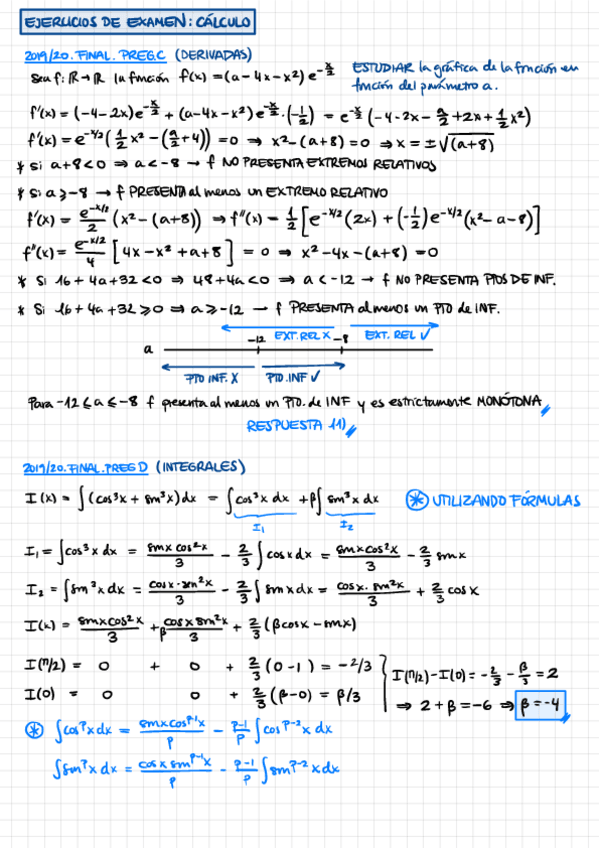 EJERCICIOS DE EXAMEN: CÁLCULO
2019/20. FINAL. PREG.C (DERIVADAS)
Sea f: ℝ → ℝ la función f(x) = (a - 4x - x²) e^(-x/2)
ESTUDIAR la gráfica de la función en
función del parámetro a.
f'(x) = (-4-2x)e^(-x/2) + (a-4x-x²)e^(-x/2)·(-1/2) = e^(-x/2) (-4-2x - a/2 + 2x + 1/2 x²)
f'(x) = e^(-x/2) (1/2 x² - (a/2 + 4)) = 0 ⇒ x² - (a+8) = 0 ⇒ x = ±√(a+8)
* Si a+8 < 0 ⇒ a < -8 → f NO PRESENTA EXTREMOS RELATIVOS
* Si a ≥ -8 → f PRESENTA al menos un EXTREMO RELATIVO
f'(x) = e^(-x/2)/2 (x² - (a+8)) ⇒ f''(x) = 1/2 [e^(-x/2) (2x) + (-1/2) e^(-x/2) (x² - a - 8)]
f''(x) = e^(-x/2)/4 [4x - x² + a + 8] = 0 ⇒ x² - 4x - (a+8) = 0
* Si 16 + 4a + 32 < 0 ⇒ 48 + 4a < 0 ⇒ a < -12 → f NO PRESENTA PTOS DE INF.
* Si 16 + 4a + 32 ≥ 0 ⇒ a ≥ -12 → f PRESENTA al menos un PTO de INF.
-12 EXT. REL X -8 EXT. REL ✓
a
PTO INF. X PTO. INF ✓
Para -12 ≤ a ≤ -8 f presenta al menos un PTO. de INF y es estrictamente MONÓTONA
RESPUESTA 11)
2019/20. FINAL. PREG D (INTEGRALES)
I(x) = ∫(cos³x + sm³x)dx = ∫cos³x dx + β∫sm³x dx ⊛ UTILIZANDO FÓRMULAS
I₁ I₂
I₁ = ∫cos³x dx = smx cos²x/3 - 2/3 ∫cosx dx = smx cos²x/3 - 2/3 smx
I₂ = ∫sm³x dx = cosx·sm²x/3 - 2/3 ∫smx dx = cosx·sm²x/3 + 2/3 cosx
I(x) = smx cos²x/3 + β cosx sm²x/3 + 2/3 (β cosx - smx)
I(π/2) = 0 + 0 + 2/3 (0-1) = -2/3
I(0) = 0 0 + 2/3 (β-0) = β/3
I(π/2) - I(0) = -2/3 - β/3 = 2
⇒ 2 + β = -6 ⇒ β = -4
⊛ ∫cosᵖx dx = smx cosᵖ⁻¹x/p - p-1/p ∫cosᵖ⁻²x dx
∫smᵖx dx = cosx smᵖ⁻¹x/p - p-1/p ∫smᵖ⁻²x dx